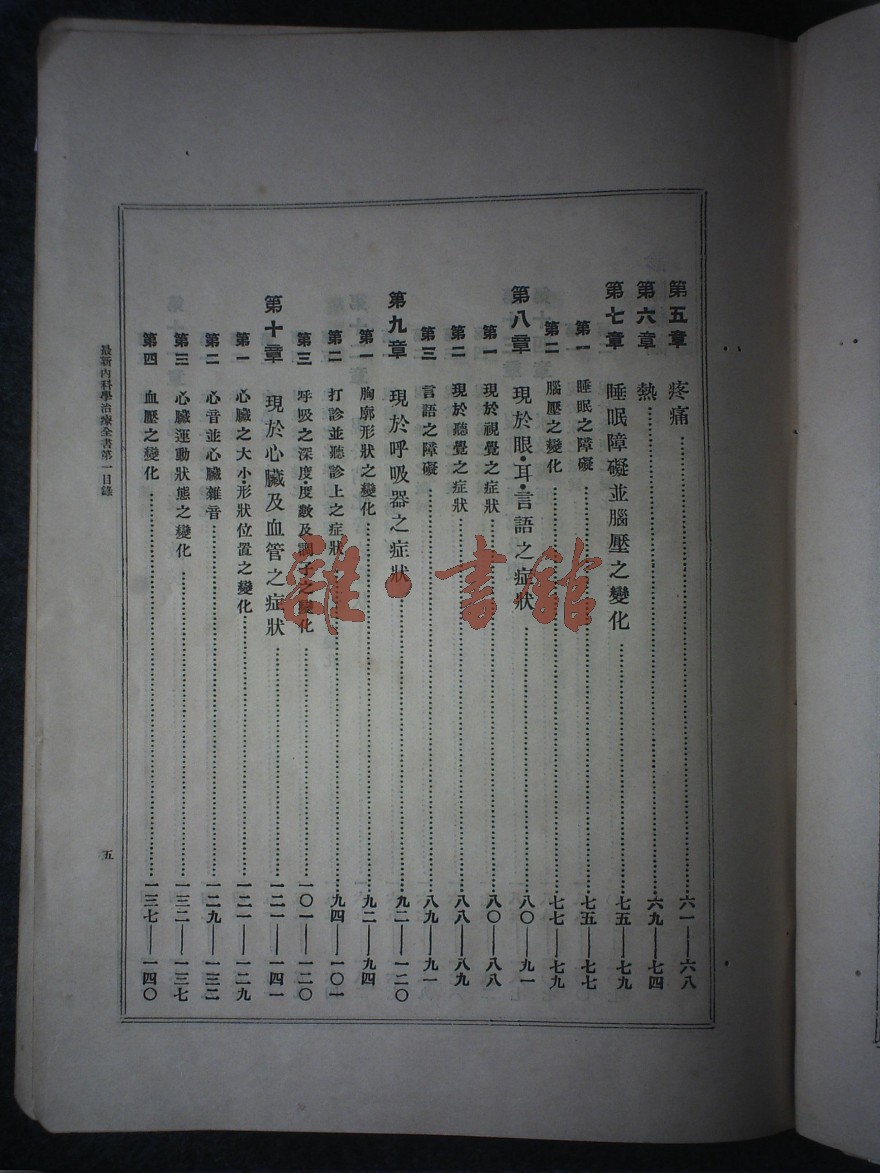 第五章 疼痛……六一——六八
第六章 熱……六九——七四
第七章 睡眠障礙並腦壓之變化……七五——七九
第一 睡眠之障礙……七五——七七
第二 腦壓之變化……七七——七九
第八章 現於眼•耳•言語之症狀……八〇——九一
第一 現於視覺之症狀……八〇——八八
第二 現於聽覺之症狀……八八——八九
第三 言語之障礙……八九——九一
第九章 現於呼吸器之症狀……九二——一二〇
第一 胸廓形狀之變化……九二——九四
第二 打診並聽診上之症狀……九四——一〇一
第三 呼吸之深度•度數及調子之變化……一〇一——一二〇
第十章 現於心臟及血管之症狀……一二一——一四一
第一 心臟之大小•形狀位置之變化……一二一——一二九
第二 心音並心臟雜音……一二九——一三二
第三 心臟運動狀態之變化……一三二——一三七
第四 血壓之變化……一三七——一四〇
最新內科學治療全書第一目錄
五
雜•書館